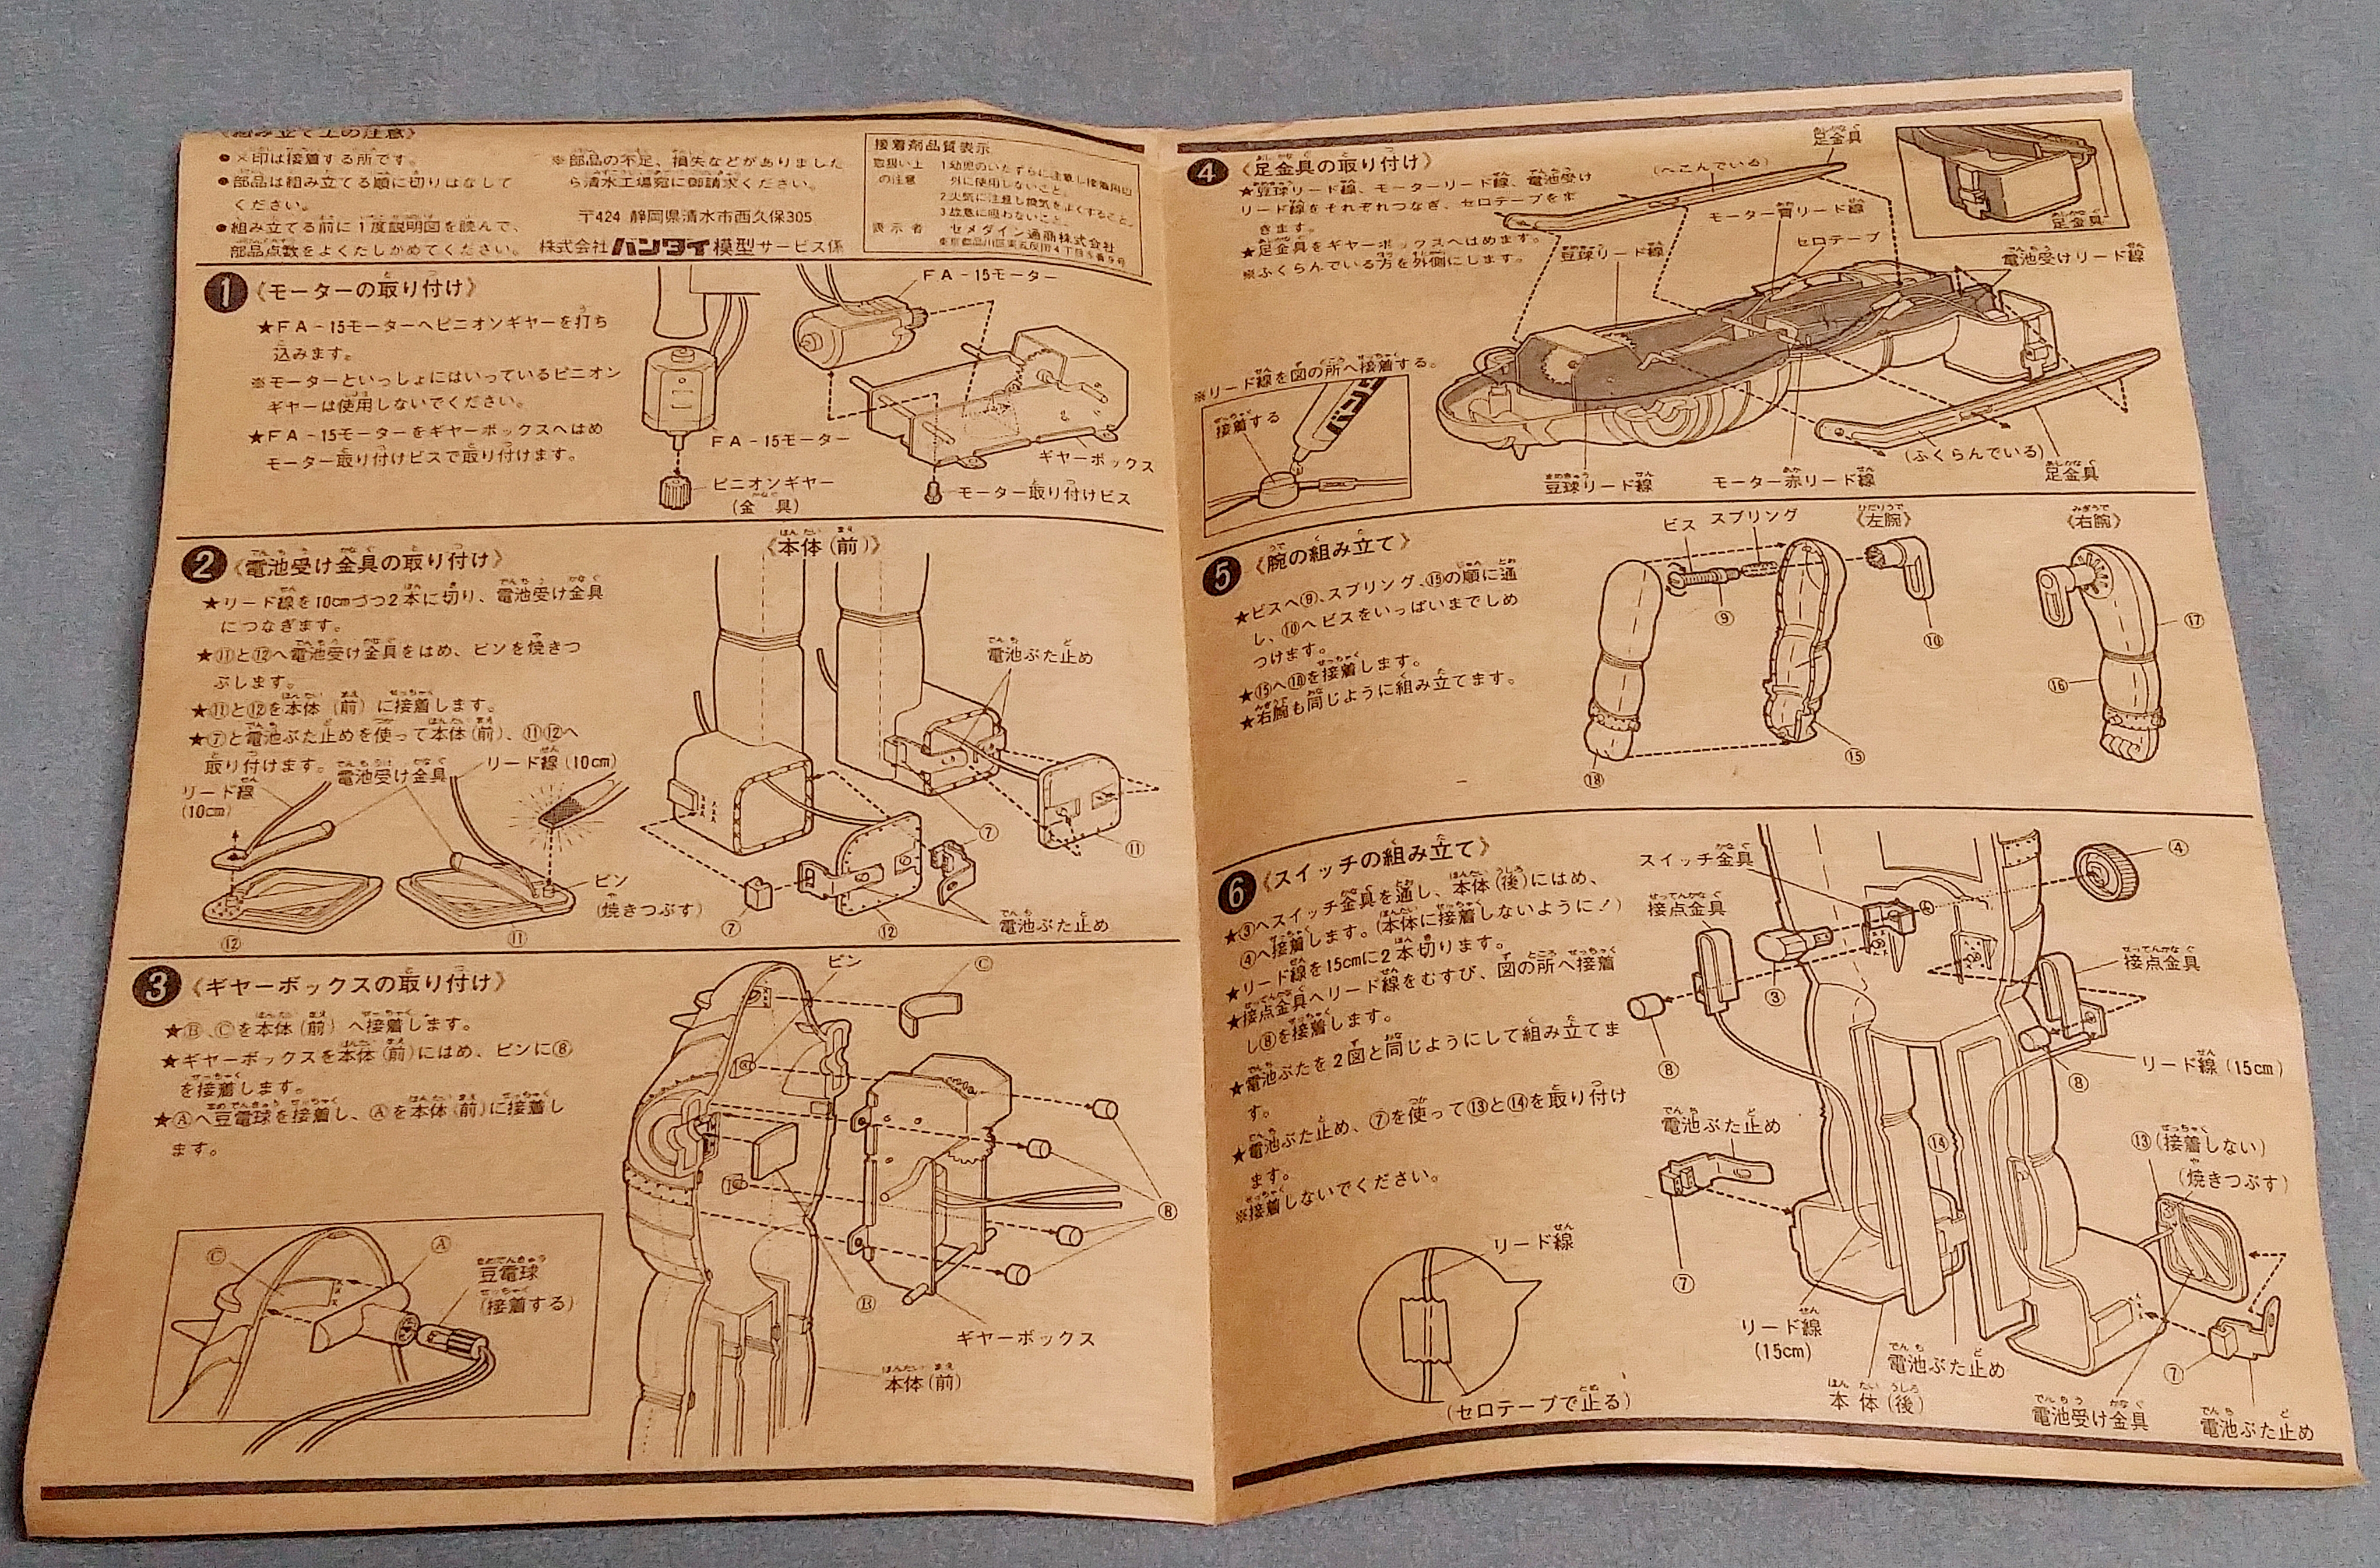 《組み立て上の注意》
●×印は接着する所です。
●部品は組み立てる順に切りはなして
ください。
●組み立てる前に1度説明図を読んで、
部品点数をよくたしかめてください。
※部品の不足、損失などがありました
ら清水工場宛に御請求ください。
〒424 静岡県清水市西久保305
株式会社バンダイ模型サービス係
接着剤品質表示
取扱い上
の注意
1幼児のいたずらに注意し接着用以
外に使用しないこと。
2火気に注意し換気をよくすること。
3故意に吸わないこと。
表示者 セメダイン通商株式会社
東京都品川区東五反田4丁目5番9号
1《モーターの取り付け》
★FA-15モーターへピニオンギヤーを打ち
込みます。
※モーターといっしょにはいっているピニオン
ギヤーは使用しないでください。
★FA-15モーターをギヤーボックスへはめ
モーター取り付けビスで取り付けます。
FA-15モーター
FA-15モーター
ギヤーボックス
ピニオンギヤー
(金具)
モーター取り付けビス
2《電池受け金具の取り付け》
《本体(前)》
★リード線を10cmづつ2本に切り、電池受け金具
につなぎます。
★⑪と⑫へ電池受け金具をはめ、ピンを焼きつ
ぶします。
★⑪と⑫を本体(前)に接着します。
★⑦と電池ぶた止めを使って本体(前)、⑪⑫へ
取り付けます。
電池受け金具
リード線(10cm)
リード線
(10cm)
電池ぶた止め
ピン
(焼きつぶす)
⑫
⑪
⑦
⑫
⑦
⑪
電池ぶた止め
3《ギヤーボックスの取り付け》
★Ⓑ、Ⓒを本体(前)へ接着します。
★ギヤーボックスを本体(前)にはめ、ピンに⑧
を接着します。
★Ⓐへ豆電球を接着し、Ⓐを本体(前)に接着し
ます。
ピン
Ⓒ
⑧
Ⓑ
ギヤーボックス
本体(前)
Ⓒ
Ⓐ
豆電球
(接着する)
4《足金具の取り付け》
★豆球リード線、モーターリード線、電池受け
リード線をそれぞれつなぎ、セロテープをま
きます。
★足金具をギヤーボックスへはめます。
※ふくらんでいる方を外側にします。
足金具
(へこんでいる)
モーター青リード線
セロテープ
豆球リード線
足金具
電池受けリード線
※リード線を図の所へ接着する。
接着する
豆球リード線
モーター赤リード線
(ふくらんでいる)
足金具
5《腕の組み立て》
★ビスへ⑨、スプリング、⑮の順に通
し、⑩へビスをいっぱいまでしめ
つけます。
★⑮へ⑱を接着します。
★右腕も同じように組み立てます。
ビス
スプリング
《左腕》
《右腕》
⑨
⑩
⑰
⑯
⑮
⑱
6《スイッチの組み立て》
★③へスイッチ金具を通し、本体(後)にはめ、
④へ接着します。(本体に接着しないように!)
★リード線を15cmに2本切ります。
★接点金具へリード線をむすび、図の所へ接着
し⑧を接着します。
★電池ぶたを2図と同じようにして組み立てま
す。
★電池ぶた止め、⑦を使って⑬と⑭を取り付け
ます。
※接着しないでください。
スイッチ金具
接点金具
④
③
接点金具
⑧
⑧
リード線(15cm)
電池ぶた止め
⑭
⑬(接着しない)
(焼きつぶす)
⑦
リード線
(セロテープで止る)
リード線
(15cm)
電池ぶた止め
本体(後)
⑦
電池受け金具
電池ぶた止め